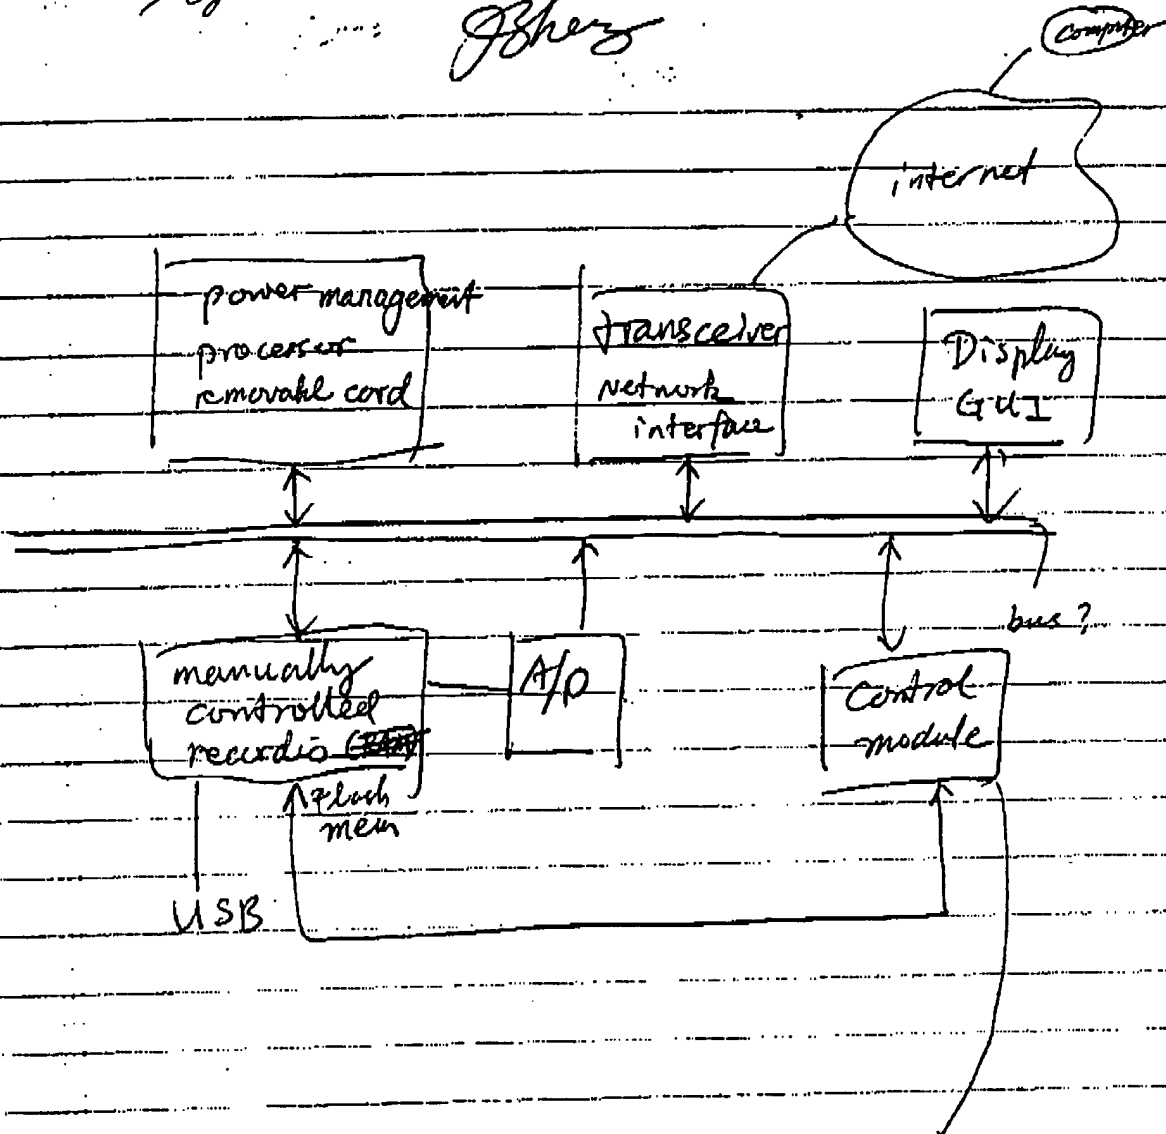 computer
internet
power management
processor
removabl cord
transceiver
Network
interface
Display
GUI
bus?
manually
controlled
recordio
A/D
control
module
Flash
mem
USB